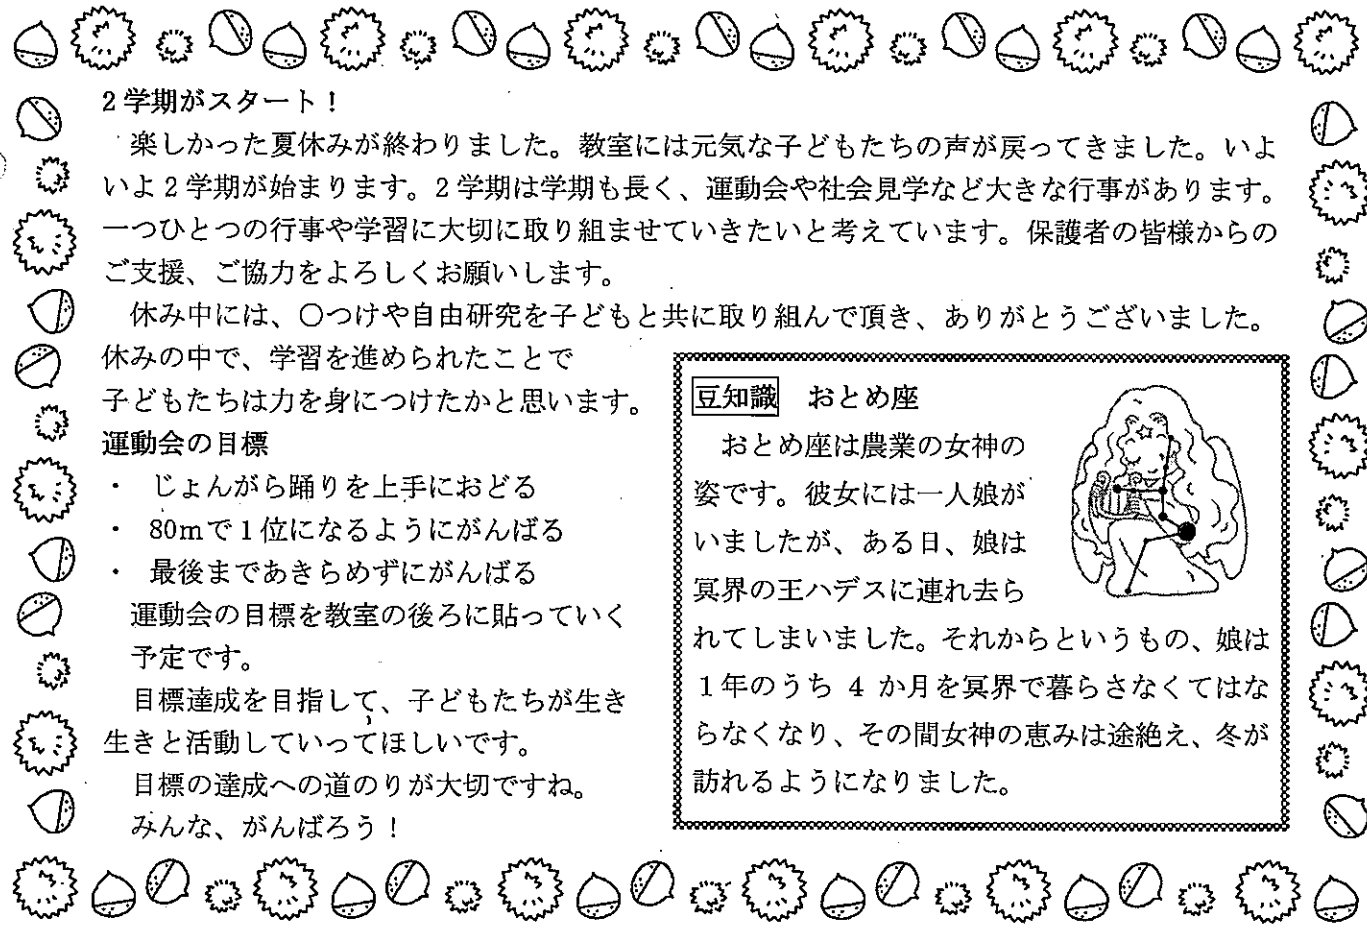 2学期がスタート！
楽しかった夏休みが終わりました。教室には元気な子どもたちの声が戻ってきました。いよ
いよ2学期が始まります。2学期は学期も長く、運動会や社会見学など大きな行事があります。
一つひとつの行事や学習に大切に取り組ませていきたいと考えています。保護者の皆様からの
ご支援、ご協力をよろしくお願いします。
休み中には、○つけや自由研究を子どもと共に取り組んで頂き、ありがとうございました。
休みの中で、学習を進められたことで
子どもたちは力を身につけたかと思います。
運動会の目標
・ じょんがら踊りを上手におどる
・ 80mで1位になるようにがんばる
・ 最後まであきらめずにがんばる
運動会の目標を教室の後ろに貼っていく
予定です。
目標達成を目指して、子どもたちが生き
生きと活動していってほしいです。
目標の達成への道のりが大切ですね。
みんな、がんばろう！
豆知識 おとめ座
おとめ座は農業の女神の
姿です。彼女には一人娘が
いましたが、ある日、娘は
冥界の王ハデスに連れ去ら
れてしまいました。それからというもの、娘は
1年のうち 4 か月を冥界で暮らさなくてはな
らなくなり、その間女神の恵みは途絶え、冬が
訪れるようになりました。